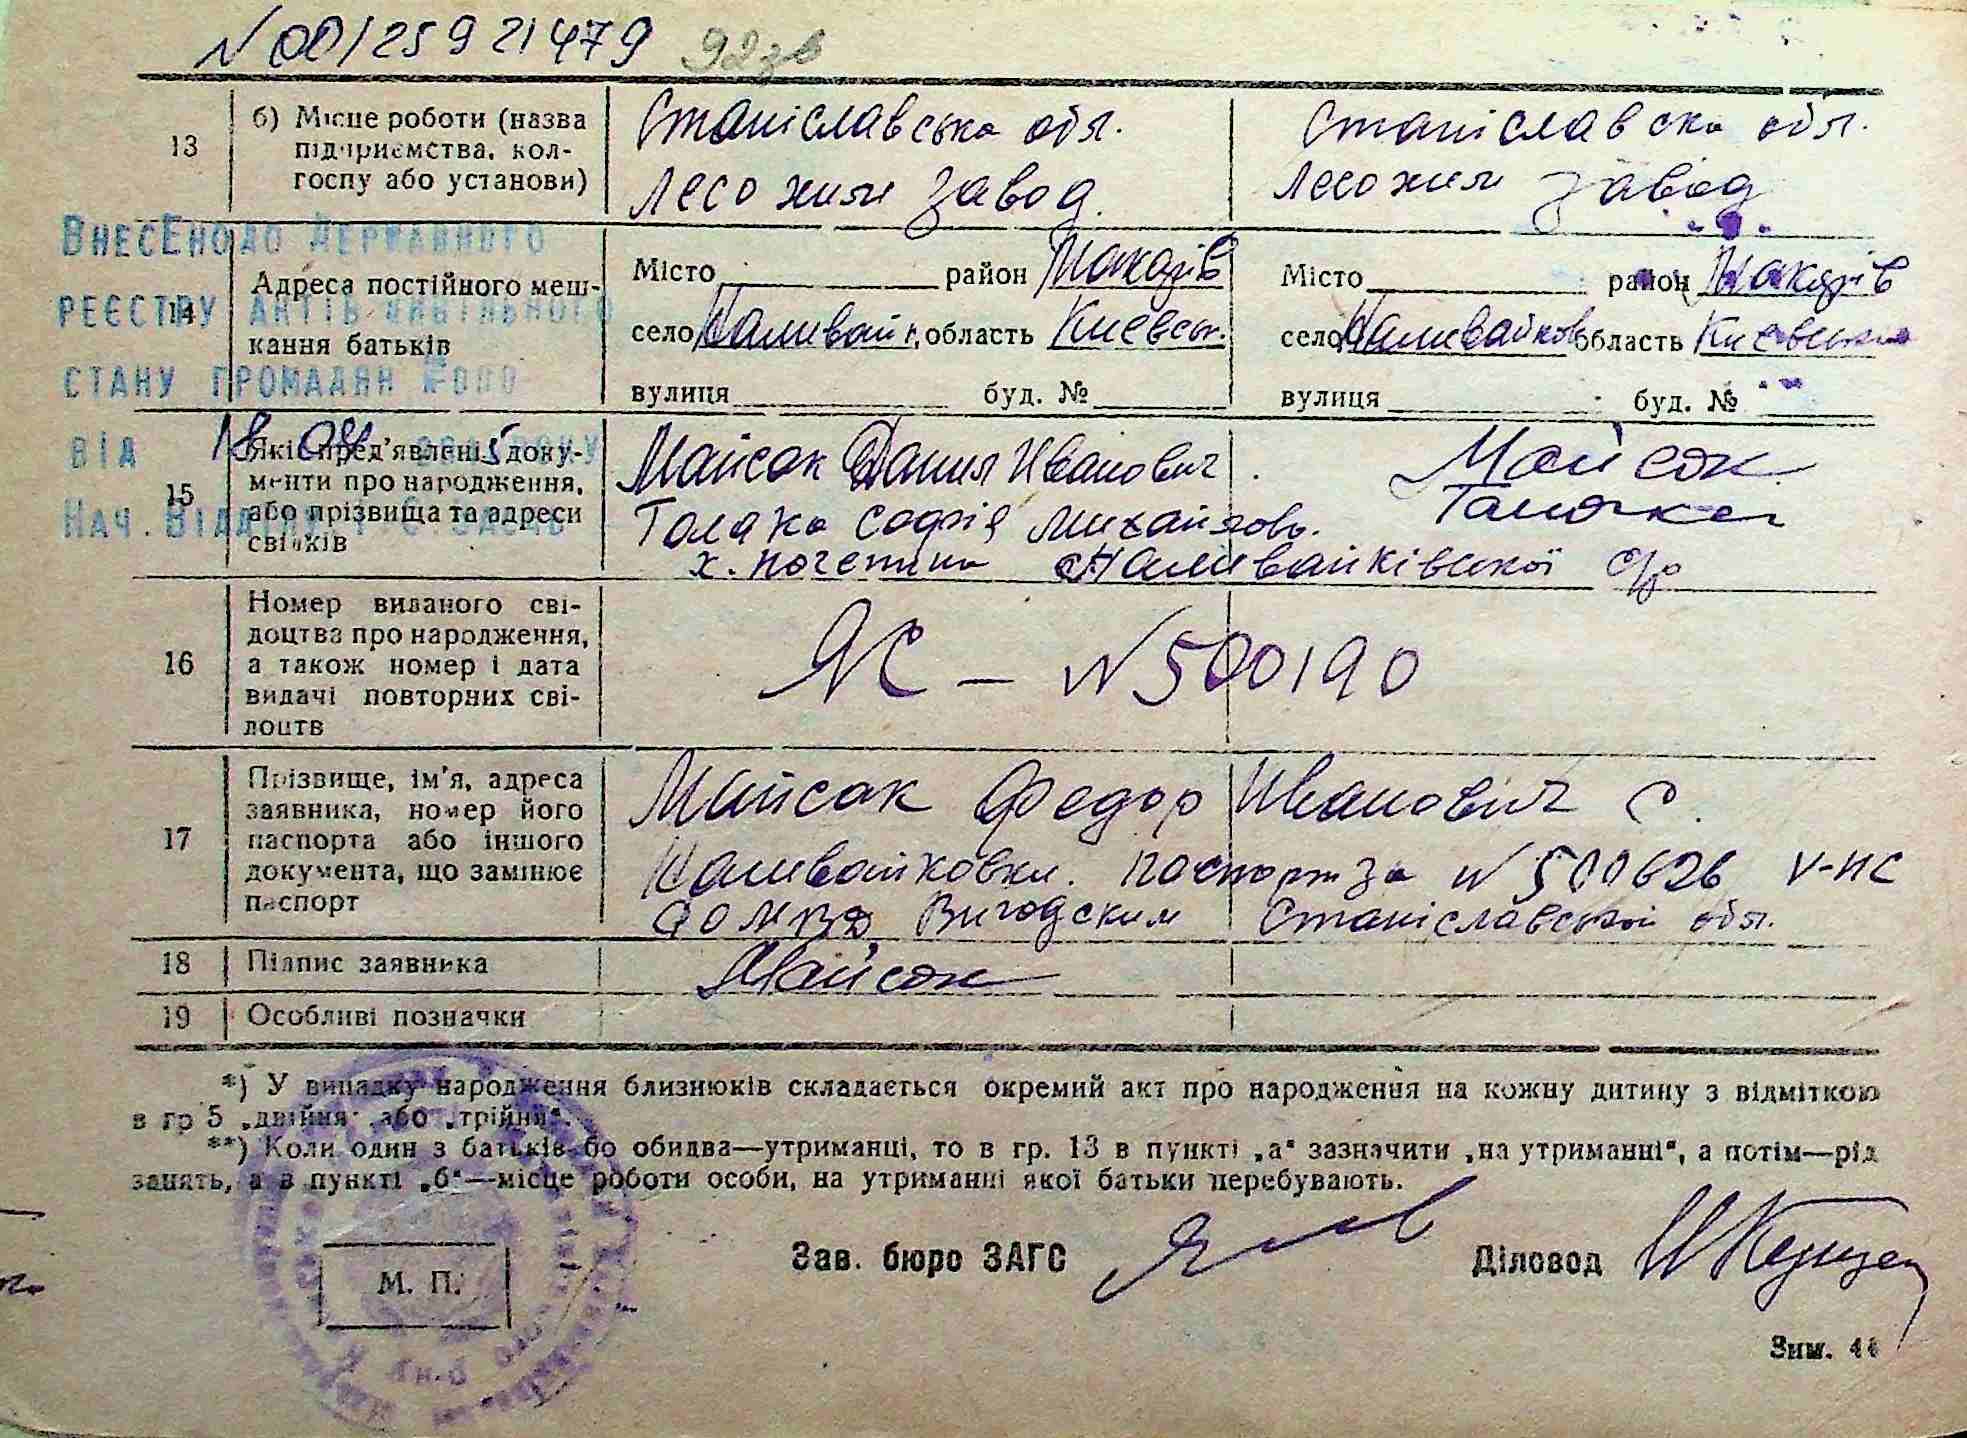 N 00125921479 92зв
13 б) Місце роботи (назва підприємства, колгоспу або установи)
Станіславська обл. Станіславска обл.
Лесохим завод. Лесохим завод
Внесено до Державного
реєстру актів цивільного
стану громадян
від 18 04 5 року
Нач. відділу
14 Адреса постійного мешкання батьків
Місто район Макарів Місто район Макарів
село Наливайк. область Киевськ. село Наливайков область Киевська
вулиця буд. № вулиця буд. №
15 Які пред'явлені документи про народження, або прізвища та адреси свідків
Майсак Данил Иванович. Майсак
Толака Софія Михайлово.
Наливайківської с/р
16 Номер виданого свідоцтва про народження, а також номер і дата видачі повторних свідоцтв
ЯС – N 500190
17 Прізвище, ім'я, адреса заявника, номер його паспорта або іншого документа, що замінює паспорт
Майсак Федор Иванович с.
Наливайковка. паспорт за N 500626 V-НС
Вигодским Станіславської обл.
18 Підпис заявника Майсак
19 Особливі позначки
*) У випадку народження близнюків складається окремий акт про народження на кожну дитину з відміткою
в гр 5 „двійня" або „трійня".
**) Коли один з батьків бо обидва—утриманці, то в гр. 13 в пункті „а" зазначити „на утриманні", а потім—рід
занять, а в пункті „б"—місце роботи особи, на утриманні якої батьки перебувають.
Зав. бюро ЗАГС Діловод
М. П.
Зим. 44